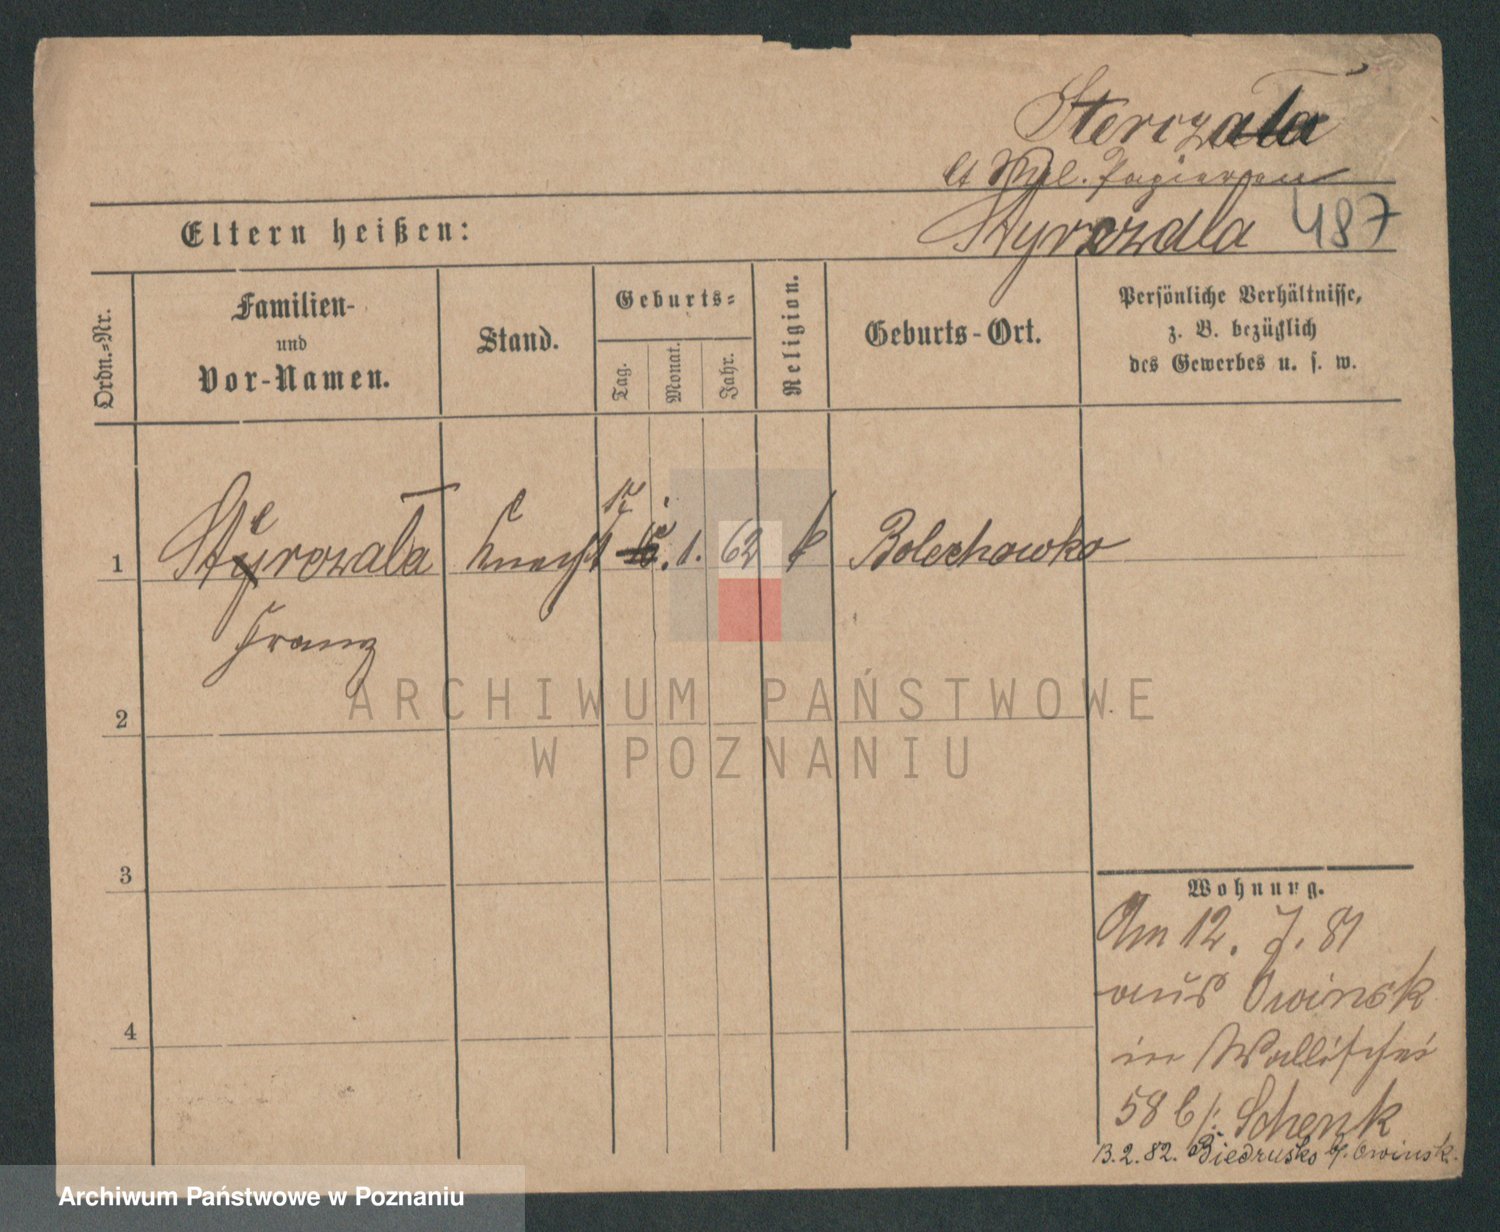 Sterczala
lt Mil. Papieren
Styrczala 487
Eltern heißen:
Ordn.-Nr.
Familien-
und
Vor-Namen.
Stand.
Geburts-
Tag.
Monat.
Jahr.
Religion.
Geburts-Ort.
Persönliche Verhältnisse,
z. B. bezüglich
des Gewerbes u. s. w.
17
1 Styrczala Knecht 1. 62 k Bolechowko
Franz
2
3
4
Wohnung.
Am 12. 7. 81
aus Owinsk
in Wallischei
58 b/: Schenk
13.2.82. Biedrusko b/. Owinsk.
ARCHIWUM PAŃSTWOWE
W POZNANIU
Archiwum Państwowe w Poznaniu